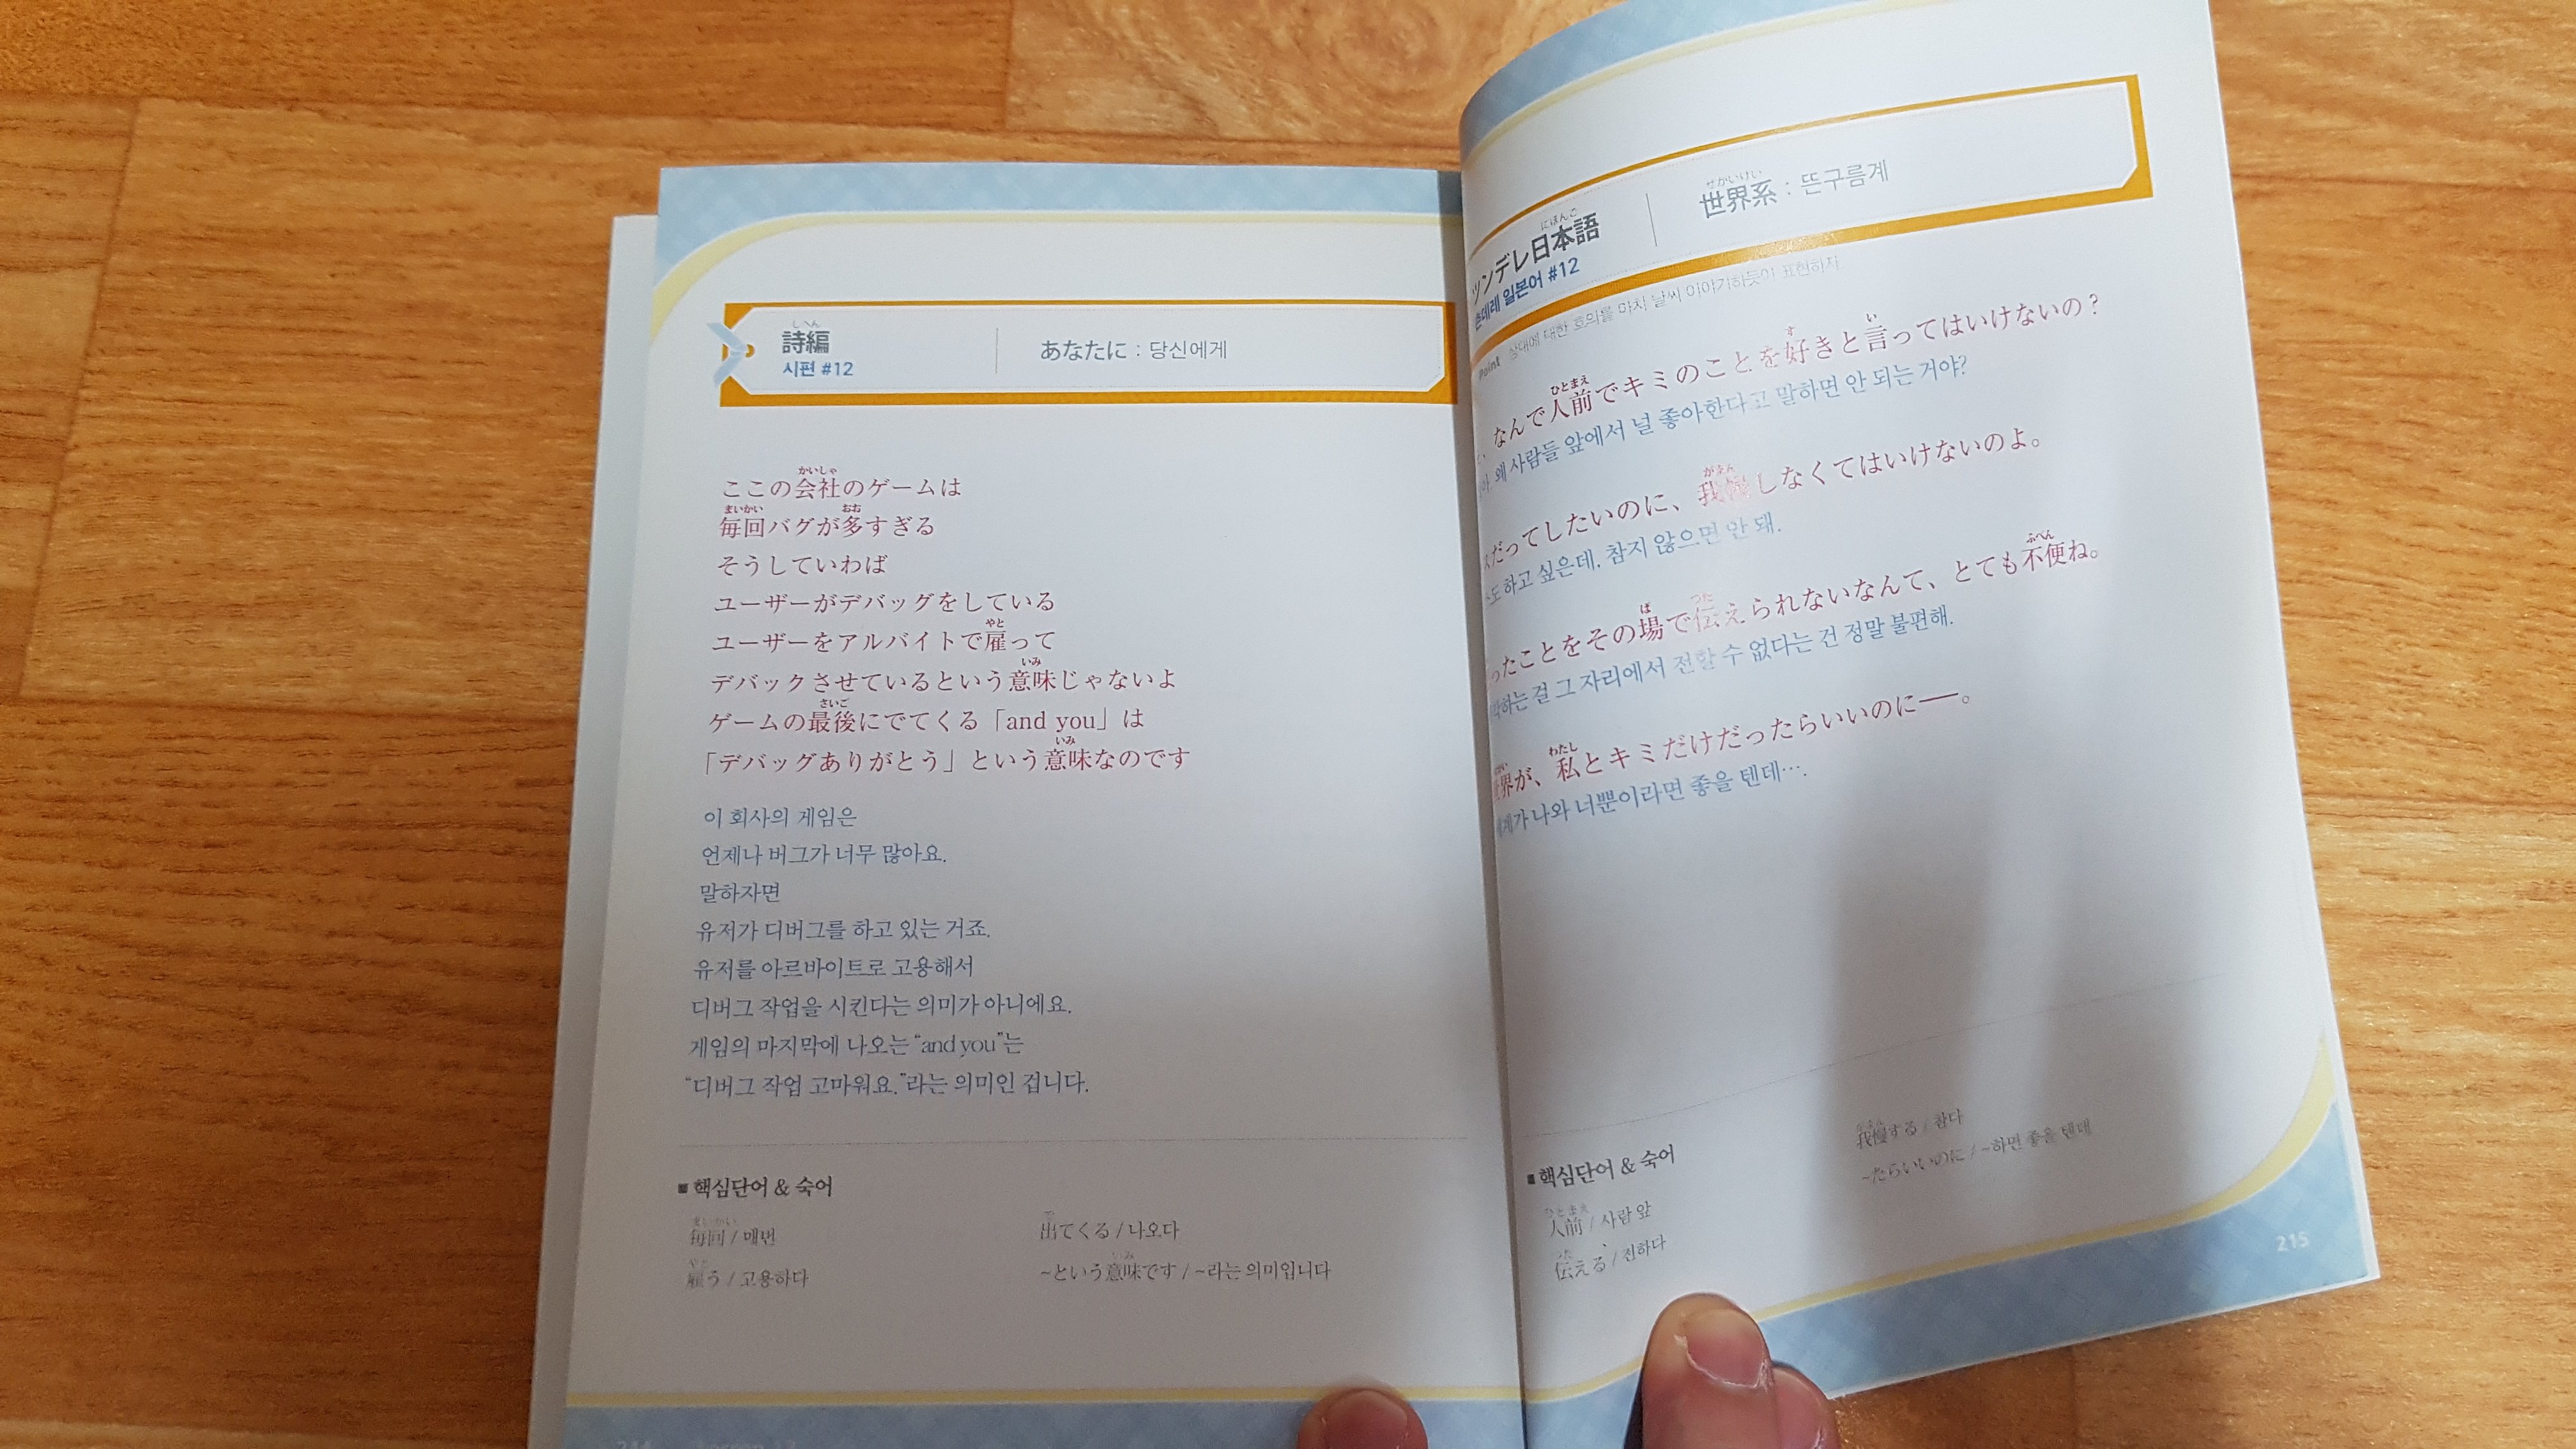 しへん
詩編
시편 #12
あなたに : 당신에게
かいしゃ
ここの会社のゲームは
まいかい おお
毎回バグが多すぎる
そうしていわば
ユーザーがデバッグをしている
やと
ユーザーをアルバイトで雇って
いみ
デバックさせているという意味じゃないよ
さいご
ゲームの最後にでてくる「and you」は
いみ
「デバッグありがとう」という意味なのです
이 회사의 게임은
언제나 버그가 너무 많아요.
말하자면
유저가 디버그를 하고 있는 거죠.
유저를 아르바이트로 고용해서
디버그 작업을 시킨다는 의미가 아니에요.
게임의 마지막에 나오는 “and you”는
“디버그 작업 고마워요.”라는 의미인 겁니다.
■ 핵심단어 & 숙어
まいかい
毎回 / 매번
やと
雇う / 고용하다
で
出てくる / 나오다
いみ
~という意味です / ~라는 의미입니다
にほんご
ツンデレ日本語
츤데레 일본어 #12
せかいけい
世界系 : 뜬구름계
Point 상대에 대한 호의를 마치 날씨 이야기하듯이 표현하자
ひとまえ す い
なんで人前でキミのことを好きと言ってはいけないの？
왜 사람들 앞에서 널 좋아한다고 말하면 안 되는 거야?
がまん
だってしたいのに、我慢しなくてはいけないのよ。
도 하고 싶은데. 참지 않으면 안 돼.
ば つた ふべん
ったことをその場で伝えられないなんて、とても不便ね。
하는 걸 그 자리에서 전할 수 없다는 건 정말 불편해.
わたし
界が、私とキミだけだったらいいのに──。
계가 나와 너뿐이라면 좋을 텐데….
■ 핵심단어 & 숙어
ひとまえ
人前 / 사람 앞
つた
伝える / 전하다
がまん
我慢する / 참다
~たらいいのに / ~하면 좋을 텐데
215